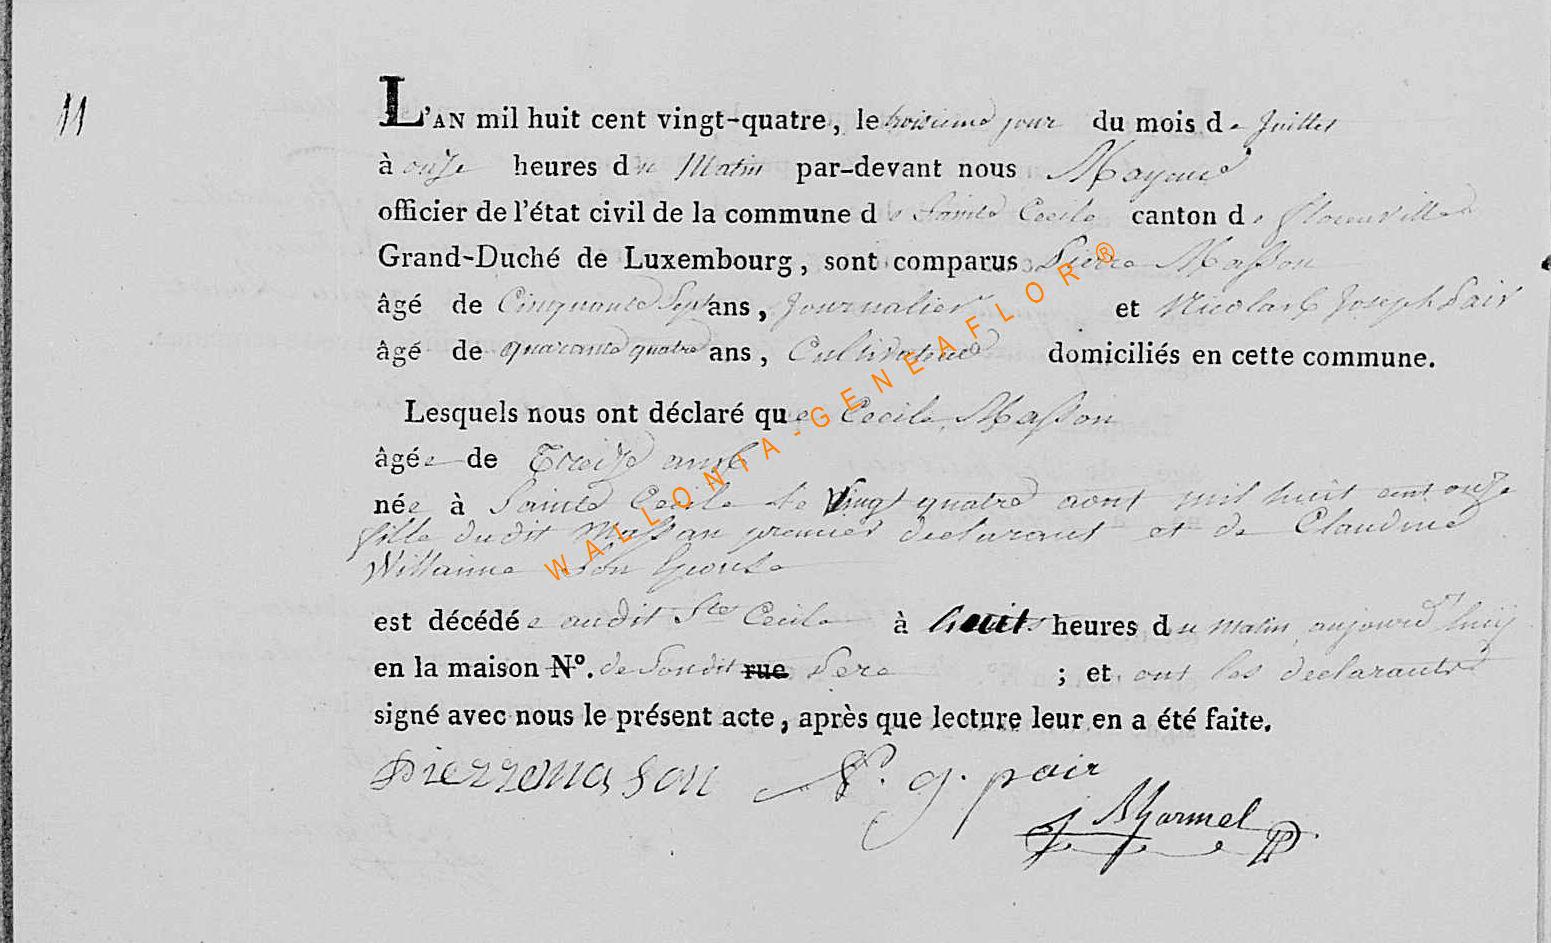 11
L'AN mil huit cent vingt-quatre, le troisieme jour du mois de Juillet
à onze heures du Matin par-devant nous Mayeur
officier de l'état civil de la commune de Sainte Cecile canton de florenville
Grand-Duché de Luxembourg, sont comparus Pierre Masson
âgé de Cinquante Sept ans, Journalier et Nicolas Joseph Pair
âgé de quarante quatre ans, Cultivateur domiciliés en cette commune.
Lesquels nous ont déclaré que Cecile Masson
âgée de Treize ans
née à Sainte Cecile le Vingt quatre aout mil huit cent onze
fille dudit Masson premier declarant et de Claudine
Willaime son Epouse
est décédée audit Ste Cecile à huit heures du matin aujourd'huy
en la maison N°. de Sondit rue Pere ; et ont les declarants
signé avec nous le présent acte, après que lecture leur en a été faite.
Pierre mason N. j. pair
J B Harmel
WALLONIA-GENEAFLOR®